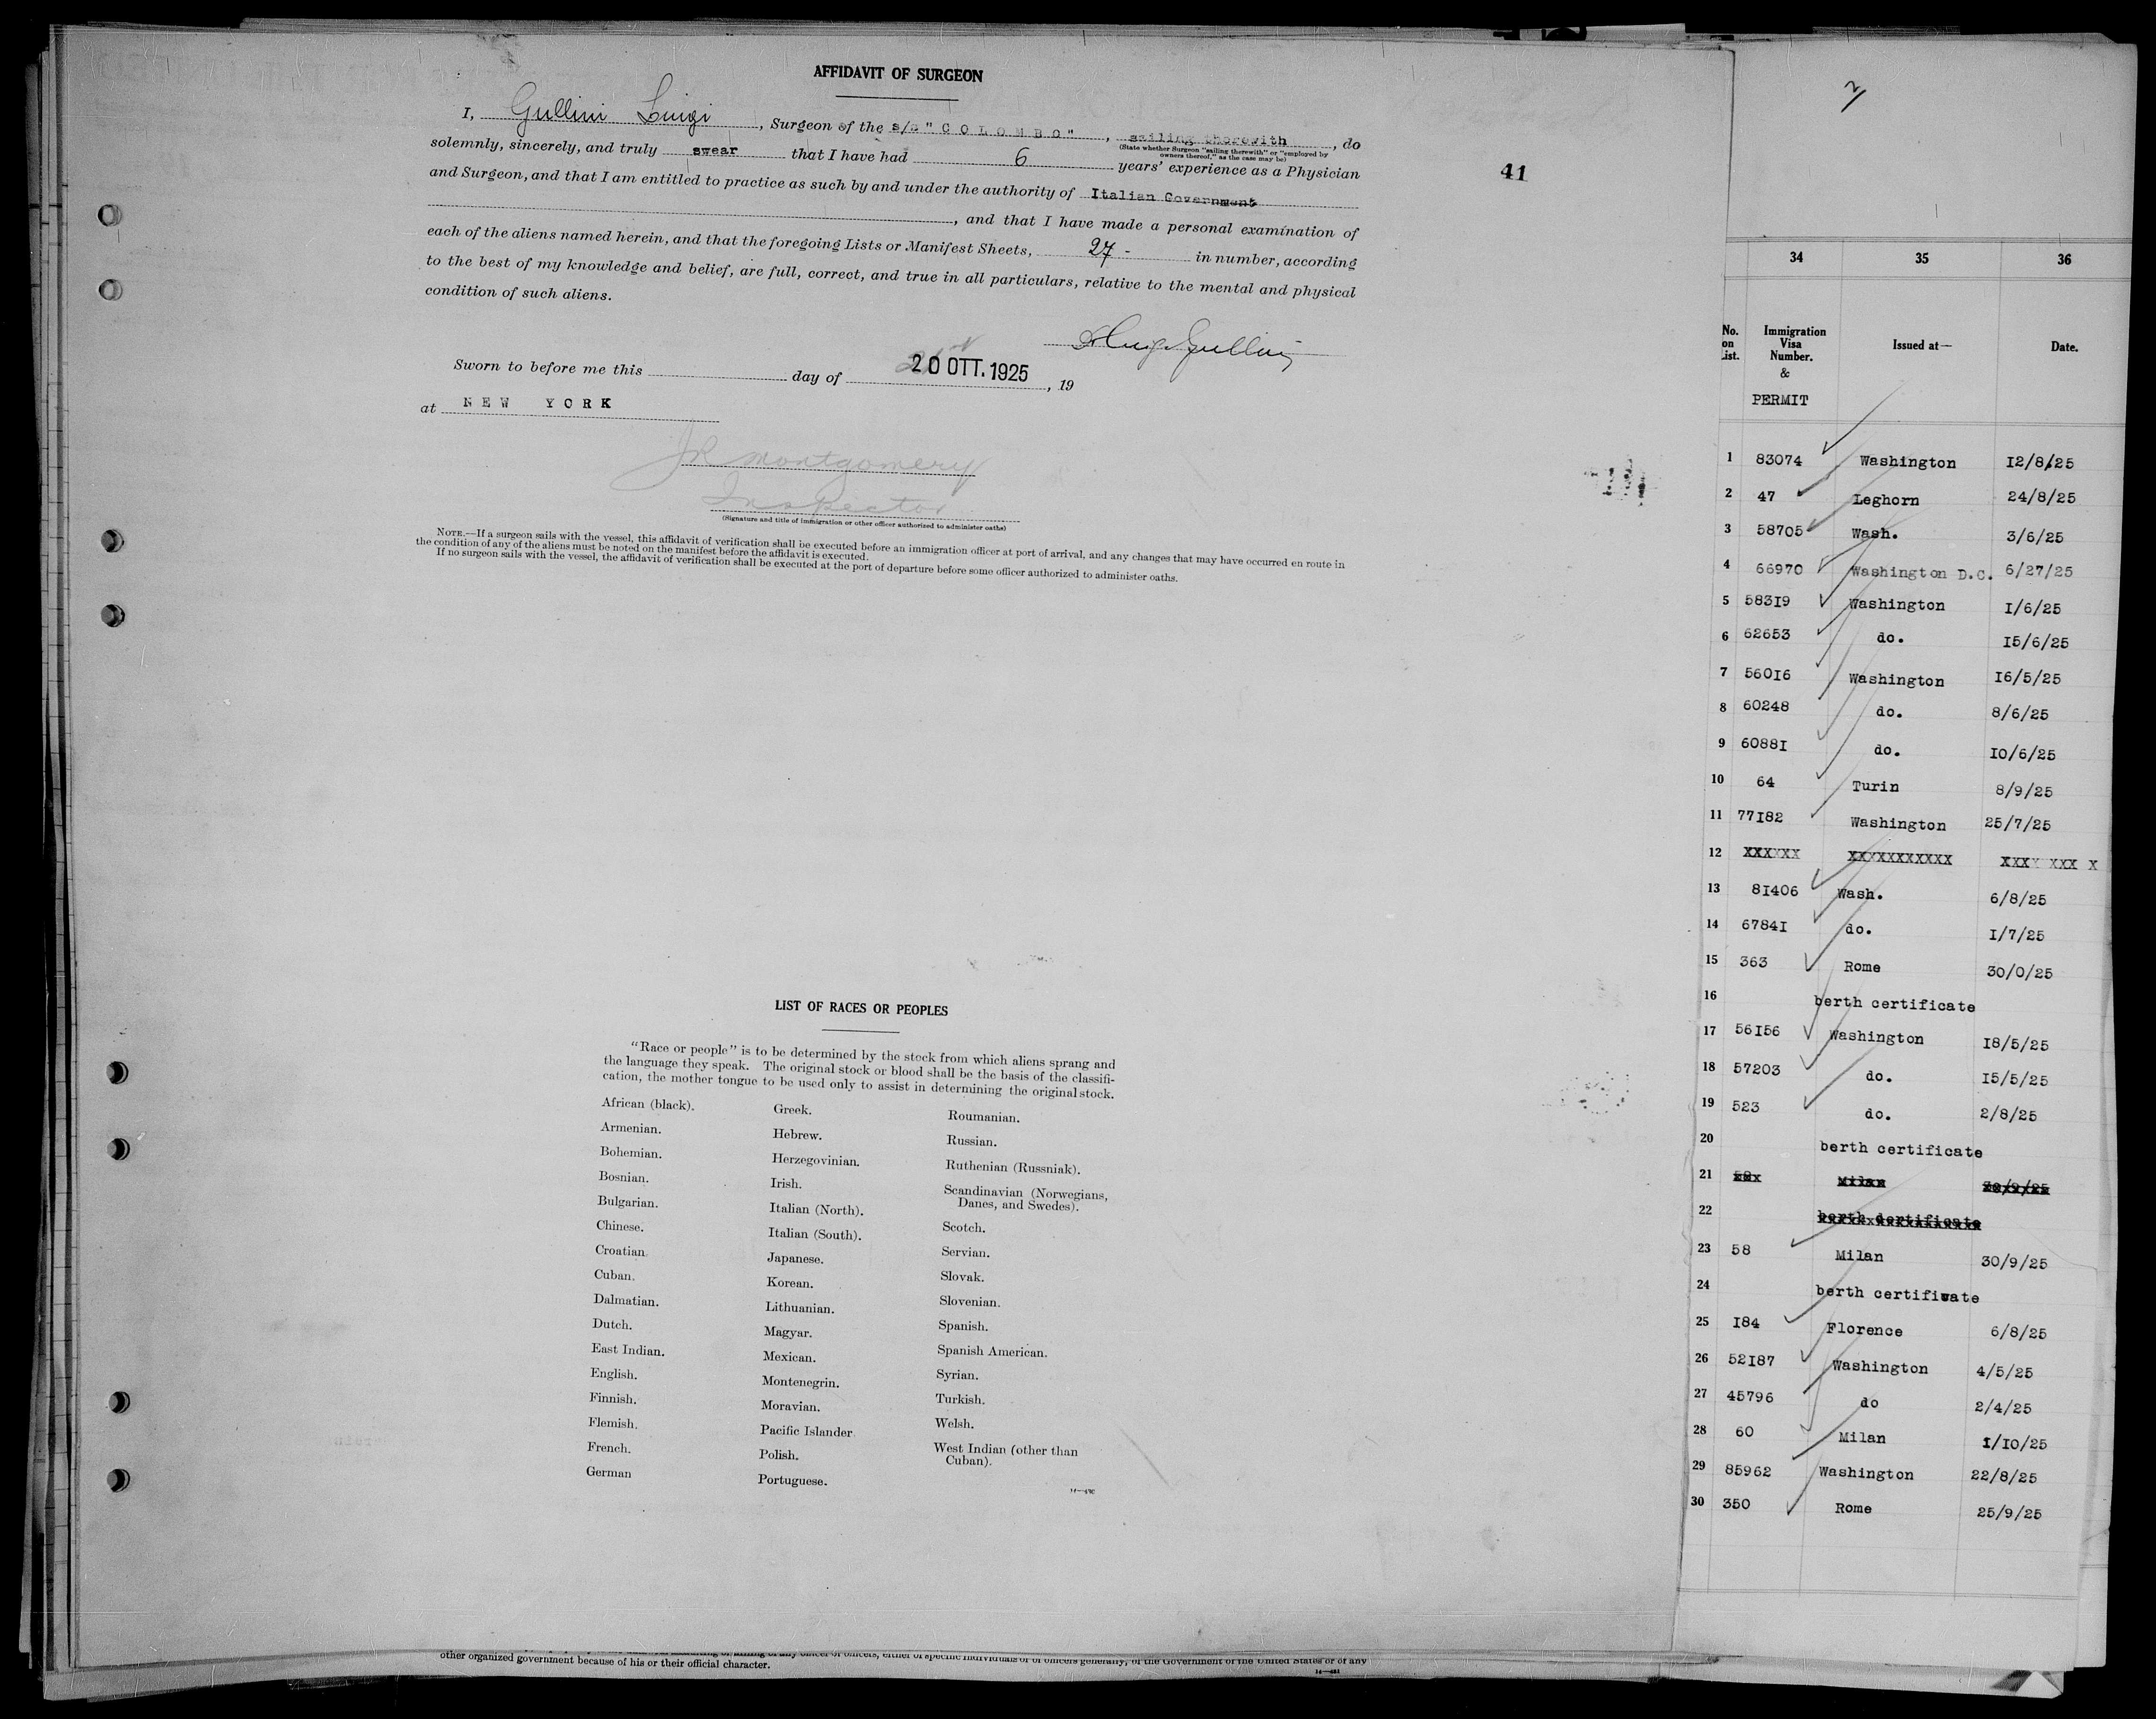 AFFIDAVIT OF SURGEON
I, Gullini Luigi, Surgeon of the s/s "COLOMBO", sailing therewith, do
(State whether Surgeon "sailing therewith" or "employed by
owners thereof," as the case may be)
solemnly, sincerely, and truly swear that I have had 6 years' experience as a Physician
and Surgeon, and that I am entitled to practice as such by and under the authority of Italian Government
, and that I have made a personal examination of
each of the aliens named herein, and that the foregoing Lists or Manifest Sheets, 27 - in number, according
to the best of my knowledge and belief, are full, correct, and true in all particulars, relative to the mental and physical
condition of such aliens.
Luigi Gullini
Sworn to before me this day of 20 OTT. 1925, 19
at NEW YORK
JR Montgomery
Inspector
(Signature and title of immigration or other officer authorized to administer oaths)
NOTE.—If a surgeon sails with the vessel, this affidavit of verification shall be executed before an immigration officer at port of arrival, and any changes that may have occurred en route in
the condition of any of the aliens must be noted on the manifest before the affidavit is executed.
If no surgeon sails with the vessel, the affidavit of verification shall be executed at the port of departure before some officer authorized to administer oaths.
LIST OF RACES OR PEOPLES
"Race or people" is to be determined by the stock from which aliens sprang and
the language they speak. The original stock or blood shall be the basis of the classifi-
cation, the mother tongue to be used only to assist in determining the original stock.
African (black).
Armenian.
Bohemian.
Bosnian.
Bulgarian.
Chinese.
Croatian
Cuban.
Dalmatian.
Dutch.
East Indian.
English.
Finnish.
Flemish.
French.
German
Greek.
Hebrew.
Herzegovinian.
Irish.
Italian (North).
Italian (South).
Japanese.
Korean.
Lithuanian.
Magyar.
Mexican.
Montenegrin.
Moravian.
Pacific Islander
Polish.
Portuguese.
Roumanian.
Russian.
Ruthenian (Russniak).
Scandinavian (Norwegians,
Danes, and Swedes).
Scotch.
Servian.
Slovak.
Slovenian.
Spanish.
Spanish American.
Syrian.
Turkish.
Welsh.
West Indian (other than
Cuban).
other organized government because of his or their official character.
41
2
34 35 36
No. on List. Immigration Visa Number. & PERMIT Issued at— Date.
1 83074 Washington 12/8/25
2 47 Leghorn 24/8/25
3 58705 Wash. 3/6/25
4 66970 Washington D.C. 6/27/25
5 58319 Washington 1/6/25
6 62653 do. 15/6/25
7 56016 Washington 16/5/25
8 60248 do. 8/6/25
9 60881 do. 10/6/25
10 64 Turin 8/9/25
11 77182 Washington 25/7/25
12 XXXXXX XXXXXXXXXXX XXXX XXX X
13 81406 Wash. 6/8/25
14 67841 do. 1/7/25
15 363 Rome 30/0/25
16 berth certificate
17 56156 Washington 18/5/25
18 57203 do. 15/5/25
19 523 do. 2/8/25
20 berth certificate
21 58x Milan 30/9/25
22 berth certificate
23 58 Milan 30/9/25
24 berth certificate
25 184 Florence 6/8/25
26 52187 Washington 4/5/25
27 45796 do 2/4/25
28 60 Milan 1/10/25
29 85962 Washington 22/8/25
30 350 Rome 25/9/25